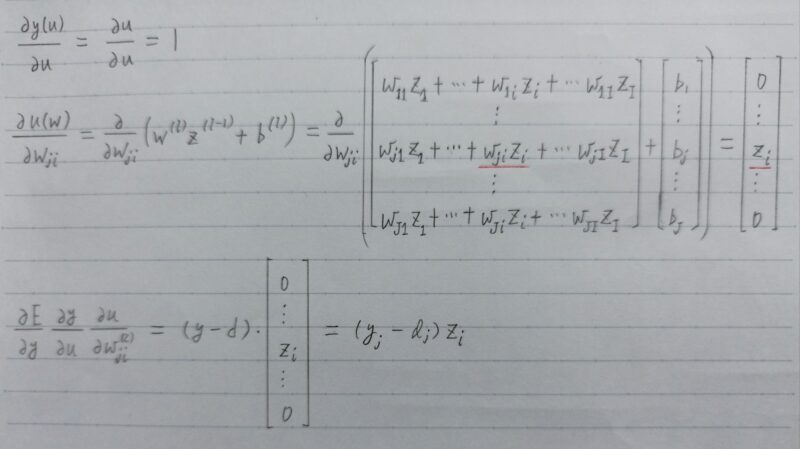 ∂y(u)/∂u = ∂u/∂u = 1
∂u(w)/∂w_ji = ∂/∂w_ji (w^(l) z^(l-1) + b^(l)) = ∂/∂w_ji ([w_11 z_1 + ⋯ + w_1i z_i + ⋯ w_1I z_I ⋮ w_j1 z_1 + ⋯ + w_ji z_i + ⋯ w_jI z_I ⋮ w_J1 z_1 + ⋯ + w_Ji z_i + ⋯ w_JI z_I] + [b_1 ⋮ b_j ⋮ b_J]) = [0 ⋮ z_i ⋮ 0]
∂E/∂y ∂y/∂u ∂u/∂w_ji = (y-d) · [0 ⋮ z_i ⋮ 0] = (y_j - d_j) z_i